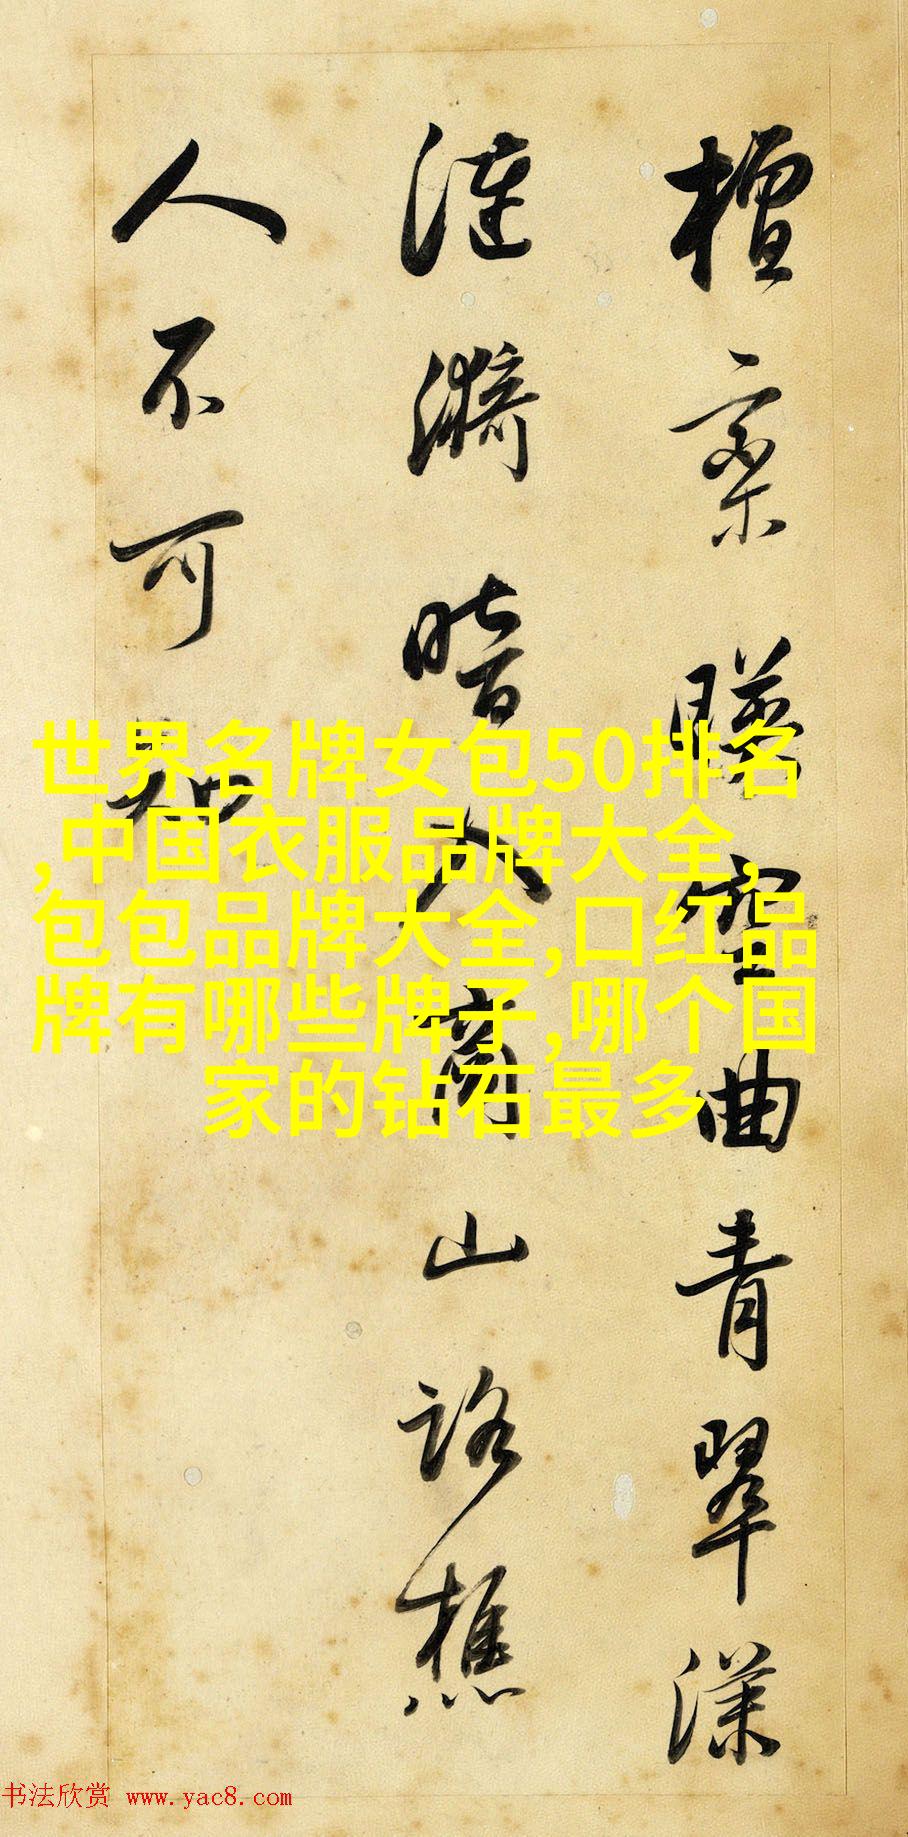 檀栾暎空曲青翠漾
漣漪暗入商山路樵
人不可知
世界名牌女包50排名
,中国衣服品牌大全,
包包品牌大全,口红品
牌有哪些牌子,哪个国
家的钻石最多
书法欣赏 www.yac8.com